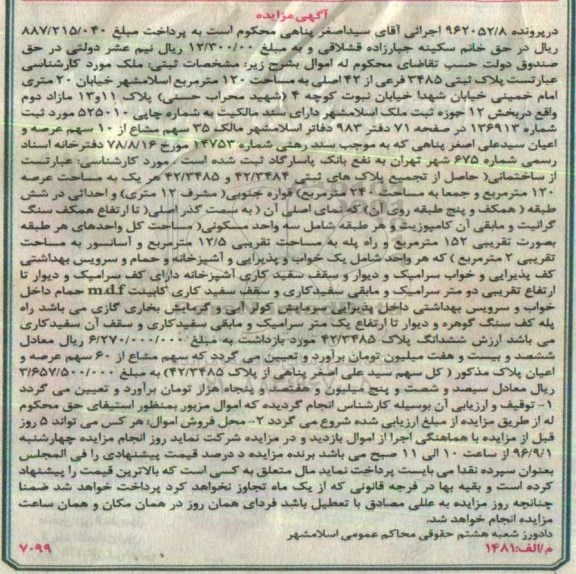 آگهی مزایده
درپرونده ۹۶۲۰۵۲/۸ اجرائی آقای سیداصغر پناهی محکوم است به پرداخت مبلغ ۸۸۷/۲۱۵/۰۴۰
ریال در حق خانم سکینه جبارزاده قشلاقی و به مبلغ ۱۲/۳۰۰/۰۰ ریال نیم عشر دولتی در حق
صندوق دولت حسب تقاضای محکوم له اموال بشرح زیر: مشخصات ثبتی: ملک مورد کارشناسی
عبارتست پلاک ثبتی ۳۴۸۵ فرعی از ۴۲ اصلی به مساحت ۱۲۰ مترمربع اسلامشهر خیابان ۲۰ متری
امام خمینی خیابان شهدا خیابان نبوت کوچه ۴ (شهید محراب حسنی) پلاک ۱۱و۱۳ مازاد دوم
واقع دربخش ۱۲ حوزه ثبت ملک اسلامشهر دارای سند مالکیت به شماره چاپی ۵۲۵۰۱۰ مورد ثبت
شماره ۱۳۶۹۱۳ در صفحه ۷۱ دفتر ۹۸۳ دفاتر اسلامشهر مالک ۳۵ سهم مشاع از ۱۰ سهم عرصه و
اعیان سیدعلی اصغر پناهی که به موجب سند رهنی شماره ۱۴۷۵۳ مورخ ۷۸/۸/۱۶ دفترخانه اسناد
رسمی شماره ۶۷۵ شهر تهران به نفع بانک پاسارگاد ثبت شده است . مورد کارشناسی: عبارتست
از ساختمانی( حاصل از تجمیع پلاک های ثبتی ۴۲/۳۴۸۴ و ۴۲/۳۴۸۵ هر یک به مساحت عرصه
۱۲۰ مترمربع و جمعا به مساحت ۲۴۰ مترمربع) قواره جنوبی( مشرف ۱۲ متری) و احداثی در شش
طبقه ( همکف و پنج طبقه روی آن) که نمای اصلی آن ( به سمت گذر اصلی( تا ارتفاع همکف سنگ
گرانیت و مابقی آن کامپوزیت و هر طبقه شامل سه واحد مسکونی( مساحت کل واحدهای هر طبقه
بصورت تقریبی ۱۵۲ مترمربع و راه پله به مساحت تقریبی ۱۲/۵ مترمربع و آسانسور به مساحت
تقریبی ۲ مترمربع ) که هر واحد شامل یک خواب و پذیرایی و آشپزخانه و حمام و سرویس بهداشتی
کف پذیرایی و خواب سرامیک و دیوار و سقف سفید کاری آشپزخانه دارای کف سرامیک و دیوار تا
ارتفاع تقریبی دو متر سرامیک و مابقی سفیدکاری و سقف سفید کاری کابینت m.d.f حمام داخل
خواب و سرویس بهداشتی داخل پذیرایی سرمایش کولر آبی و گرمایش بخاری گازی می باشد راه
پله کف سنگ گوهره و دیوار تا ارتفاع یک متر سرامیک و مابقی سفیدکاری و سقف آن سفیدکاری
می باشد ارزش ششدانگ پلاک ۴۲/۳۴۸۵ مورد بازداشت به مبلغ ۶/۲۷۰/۰۰۰/۰۰۰ ریال معادل
ششصد و بیست و هفت میلیون تومان برآورد و تعیین می گردد که سهم مشاع از ۶۰ سهم عرصه و
اعیان پلاک مذکور ( کل سهم سید علی اصغر پناهی از پلاک ۴۲/۳۴۸۵) به مبلغ ۳/۶۵۷/۵۰۰/۰۰۰
ریال معادل سیصد و شصت و پنج میلیون و هفتصد و پنجاه هزار تومان برآورد و تعیین می گردد
۱- توقیف و ارزیابی آن بوسیله کارشناس انجام گردیده که اموال مزبور بمنظور استیفای حق محکوم
له از طریق مزایده از مبلغ ارزیابی شده شروع می گردد ۲- محل فروش اموال: هر کس می تواند ۵ روز
قبل از مزایده با هماهنگی اجرا از اموال بازدید و در مزایده شرکت نماید روز انجام مزایده چهارشنبه
۹۶/۹/۱ از ساعت ۱۰ الی ۱۱ صبح می باشد برنده مزایده د درصد قیمت پیشنهادی را فی المجلس
بعنوان سپرده نقدا می بایست پرداخت نماید مال متعلق به کسی است که بالاترین قیمت را پیشنهاد
کرده است و بقیه بها در فرجه قانونی که از یک ماه تجاوز نخواهد کرد پرداخت خواهد شد ضمنا
چنانچه روز مزایده به عللی مصادق با تعطیل باشد فردای همان روز در همان مکان و همان ساعت
مزایده انجام خواهد شد.
دادورز شعبه هشتم حقوقی محاکم عمومی اسلامشهر
م/الف:۱۴۸۱ ۷۰۹۹